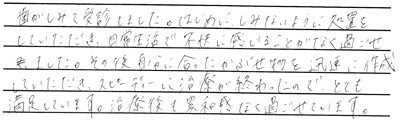 歯がしみて受診しました。はじめに、しみないように処置を
していただき、日常生活で不快に感じることがなく過ごせ
ました。その後自分に合ったかぶせ物を迅速に作成
していただき、スピーディーに治療が終わったので、とても
満足しています。治療後も違和感なく過ごせています。